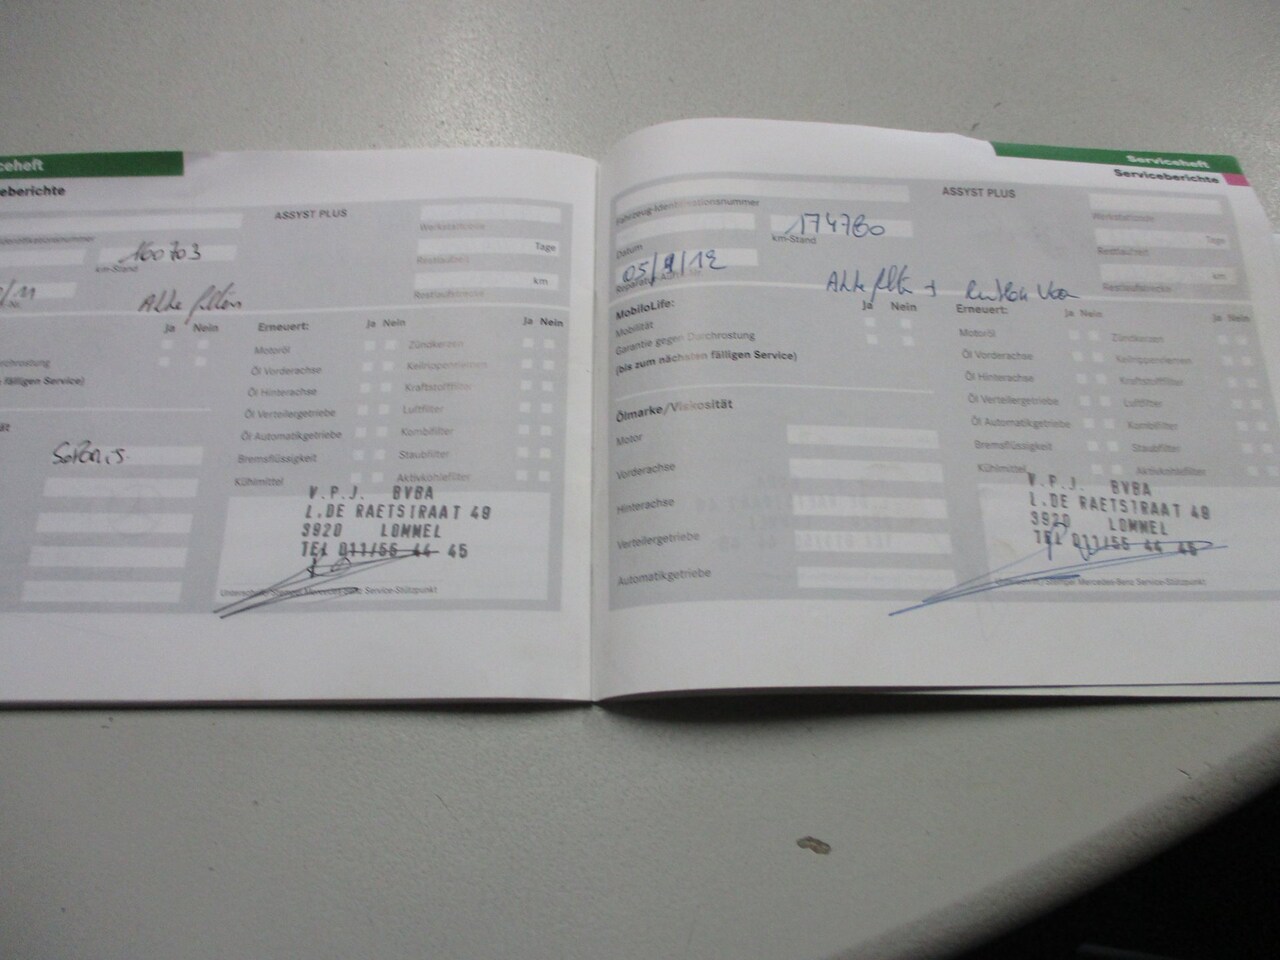 Serviceheft
eberichte
ASSYST PLUS
Werkstattcode
dentifikationsnummer
160703
Restlaufzeit
Tage
km-Stand
/11
Restlaufstrecke
km
Alle filters
Ja Nein
Erneuert:
Ja Nein
Ja Nein
Motoröl
Zündkerzen
rchrostung
Öl Vorderachse
Keilrippenriemen
fälligen Service)
Öl Hinterachse
Kraftstofffilter
Öl Verteilergetriebe
Luftfilter
ät
Öl Automatikgetriebe
Kombifilter
Bremsflüssigkeit
Staubfilter
Kühlmittel
Aktivkohlefilter
V.P.J. BVBA
L.DE RAETSTRAAT 49
3920 LOMMEL
TEL 011/55 44 45
Unterschrift/Stempel Mercedes-Benz Service-Stützpunkt
Serviceheft
Serviceberichte
ASSYST PLUS
Fahrzeug-Identifikationsnummer
Werkstattcode
174780
Datum
km-Stand
Restlaufzeit
Tage
05/9/12
km
Restlaufstrecke
Alle filt +
MobiloLife:
Ja Nein
Erneuert:
Ja Nein
Ja Nein
Mobilität
Motoröl
Zündkerzen
Garantie gegen Durchrostung
Öl Vorderachse
Keilrippenriemen
(bis zum nächsten fälligen Service)
Öl Hinterachse
Kraftstofffilter
Öl Verteilergetriebe
Luftfilter
Ölmarke/Viskosität
Öl Automatikgetriebe
Kombifilter
Motor
Bremsflüssigkeit
Staubfilter
Vorderachse
Kühlmittel
Aktivkohlefilter
Hinterachse
Verteilergetriebe
Automatikgetriebe
V.P.J. BVBA
L.DE RAETSTRAAT 49
3920 LOMMEL
TEL 011/55 44 45
Unterschrift/Stempel Mercedes-Benz Service-Stützpunkt